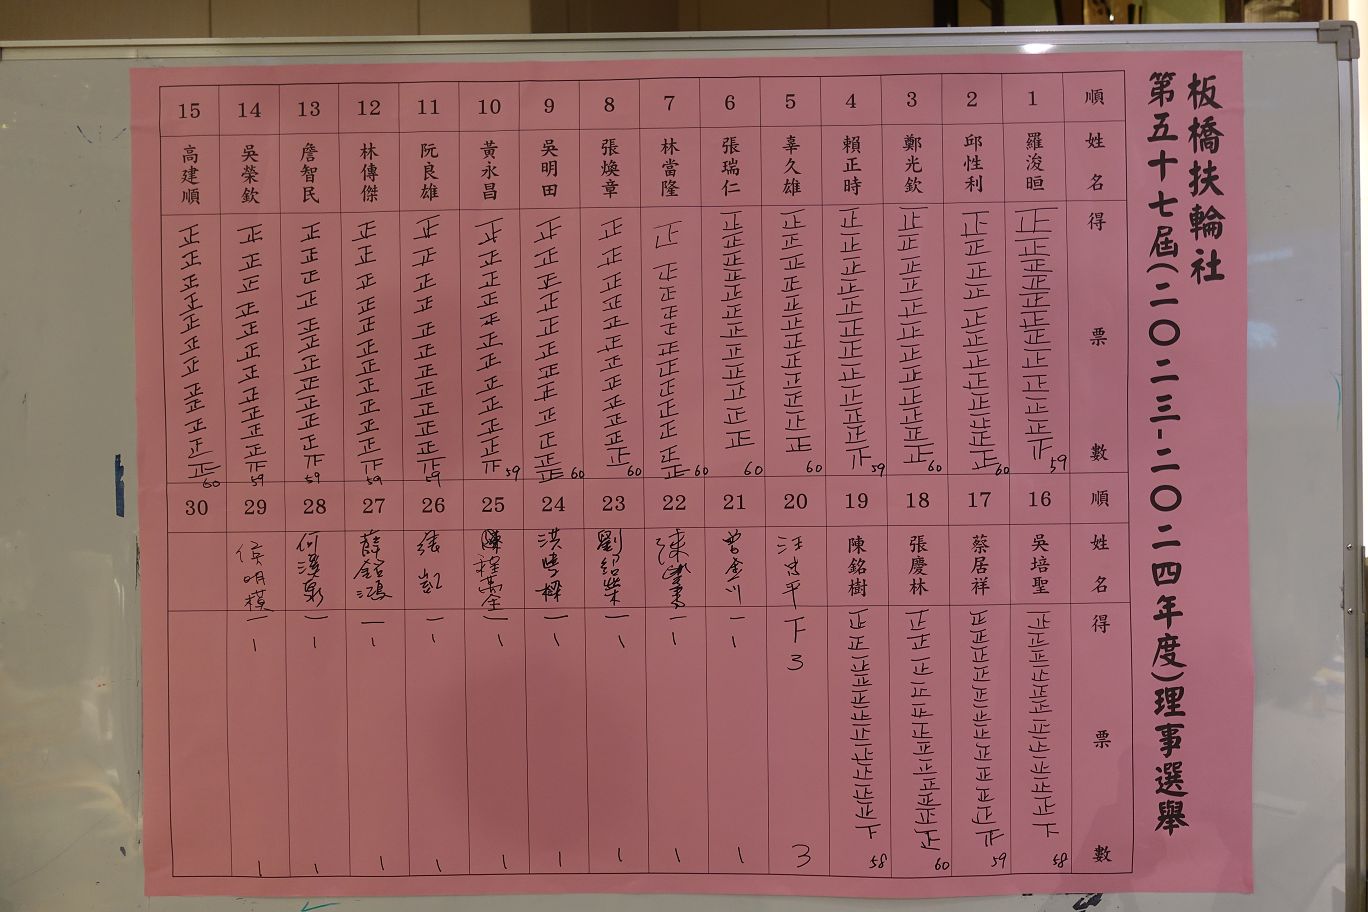 板橋扶輪社
第五十七屆(二〇二三-二〇二四年度)理事選舉
順 姓名 得票數
1 羅浚晅 正正正正正正正正正正正 59
2 邱性利 正正正正正正正正正正正正 60
3 鄭光欽 正正正正正正正正正正正正 60
4 賴正時 正正正正正正正正正正正 59
5 辜久雄 正正正正正正正正正正正正 60
6 張瑞仁 正正正正正正正正正正正正 60
7 林當隆 正正正正正正正正正正正正 60
8 張煥章 正正正正正正正正正正正正 60
9 吳明田 正正正正正正正正正正正正 60
10 黃永昌 正正正正正正正正正正正 59
11 阮良雄 正正正正正正正正正正正 59
12 林傳傑 正正正正正正正正正正正 59
13 詹智民 正正正正正正正正正正正 59
14 吳榮欽 正正正正正正正正正正正 59
15 高建順 正正正正正正正正正正正正 60
順 姓名 得票數
16 吳培聖 正正正正正正正正正正正下 58
17 蔡居祥 正正正正正正正正正正正 59
18 張慶林 正正正正正正正正正正正正 60
19 陳銘樹 正正正正正正正正正正正下 58
20 汪忠平 下 3 3
21 曾金川 一 1 1
22 一 1 1
23 劉紹榮 一 1 1
24 洪 樑 一 1 1
25 陳程 全 一 1 1
26 張凱 一 1 1
27 薛銘鴻 一 1 1
28 何溪泉 一 1 1
29 侯明模 一 1 1
30